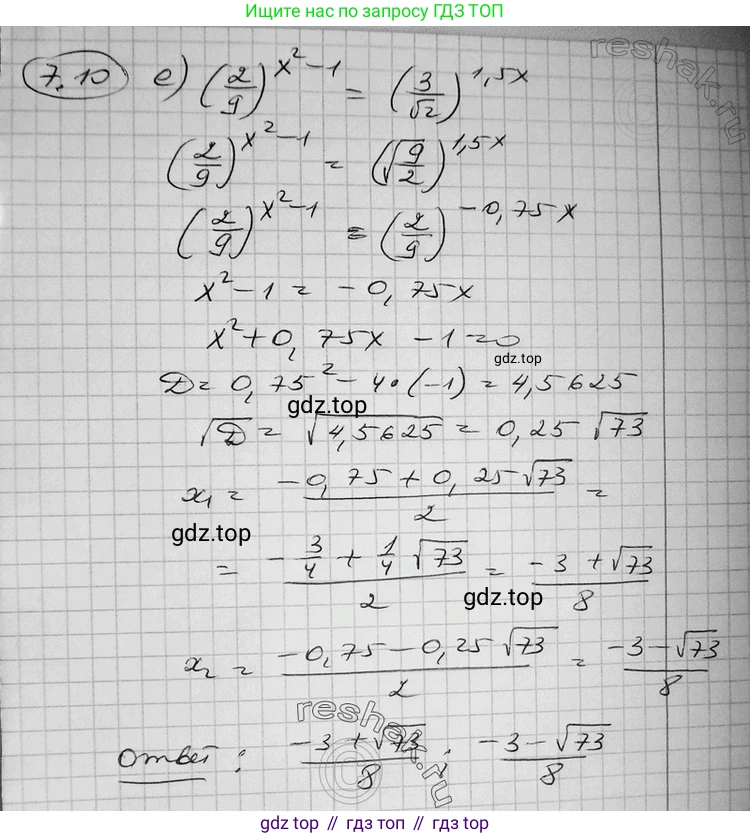 Ищите нас по запросу ГДЗ ТОП
7.10 е) (2/9)^(x²-1) = (3/√2)^(1,5x)
reshak.ru
(2/9)^(x²-1) = (√(9/2))^(1,5x)
(2/9)^(x²-1) = (2/9)^(-0,75x)
x²-1 = -0,75x
x²+0,75x-1=0
gdz.top
D = 0,75² - 4·(-1) = 4,5625
gdz.top
√D = √4,5625 = 0,25 √73
x₁ = (-0,75+0,25√73)/2 =
gdz.top
= (-3/4 + 1/4 √73)/2 = (-3+√73)/8
gdz.top
x₂ = (-0,75-0,25√73)/2 = (-3-√73)/8
reshak.ru
Ответ: (-3+√73)/8 ; (-3-√73)/8
gdz.top // гдз.топ // gdz.top